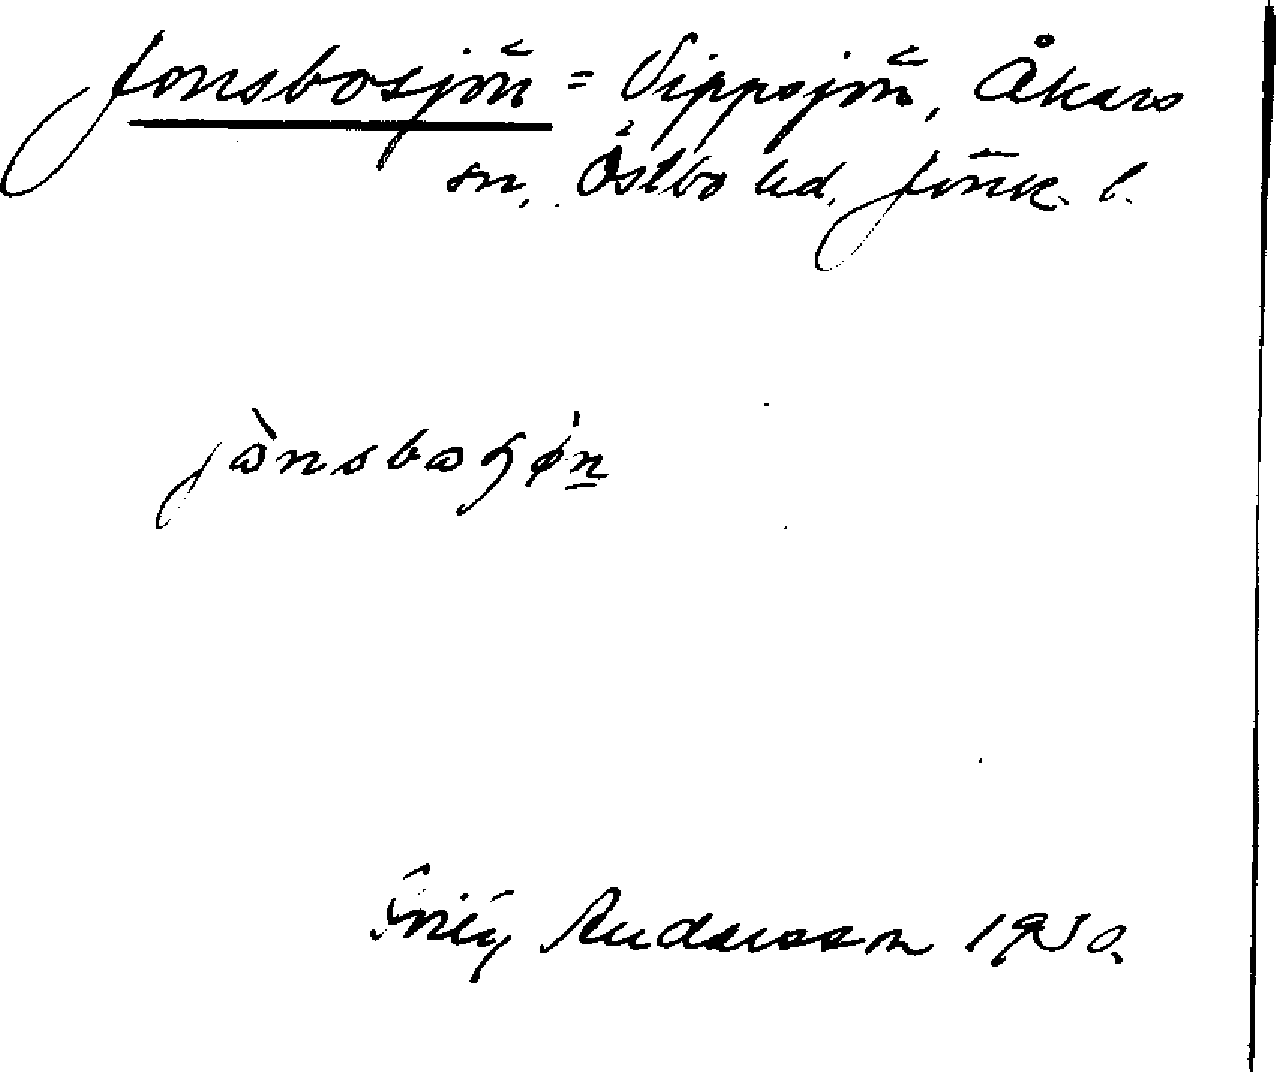 Jonsbosjön = Vippsjön, Åkers
sn, Östbo hd, Jönk. l.
jònsboʃǿn
Andersson 1930.